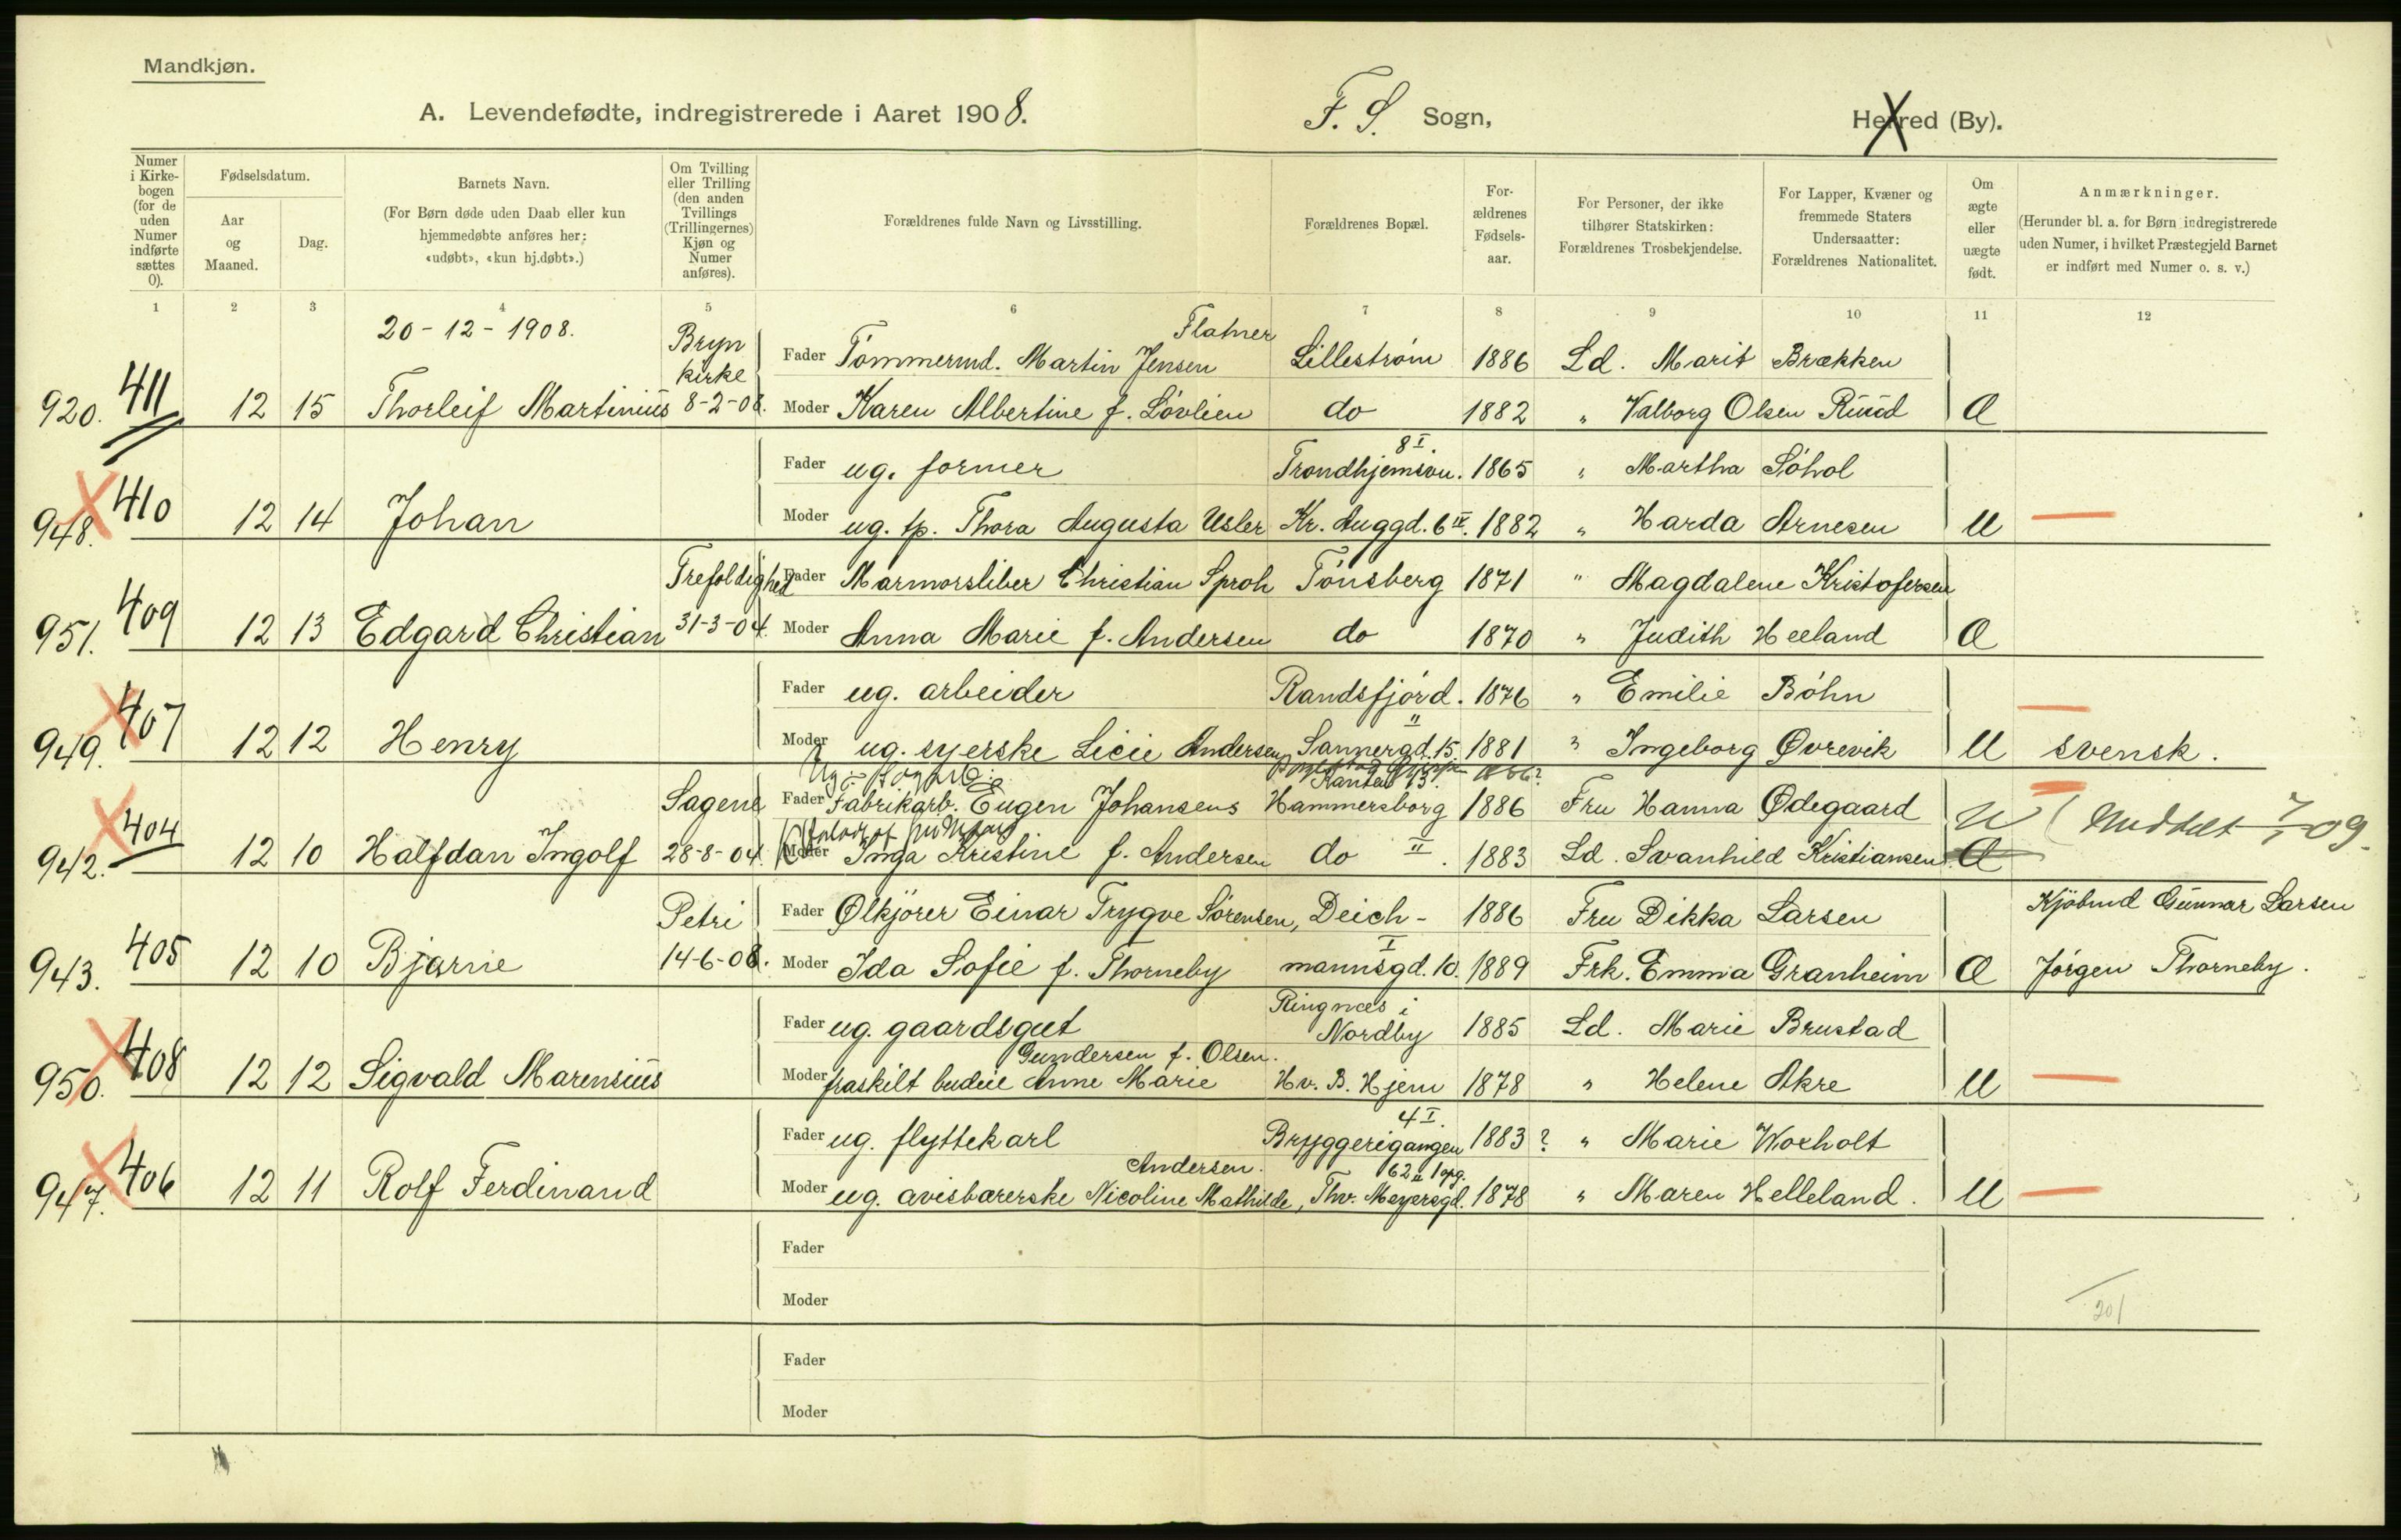 Mandkjøn.
A. Levendefødte, indregistrerede i Aaret 1908. F. S. Sogn, Herred (By).
Numer i Kirkebogen (for de uden Numer indførte sættes 0).
Fødselsdatum.
Aar og Maaned.
Dag.
Barnets Navn.
(For Børn døde uden Daab eller kun hjemmedøbte anføres her: «udøbt», «kun hj.døbt».)
Om Tvilling eller Trilling (den anden Tvillings (Trillingernes) Kjøn og Numer anføres).
Forældrenes fulde Navn og Livsstilling.
Forældrenes Bopæl.
Forældrenes Fødselsaar.
For Personer, der ikke tilhører Statskirken: Forældrenes Trosbekjendelse.
For Lapper, Kvæner og fremmede Staters Undersaatter: Forældrenes Nationalitet.
Om ægte eller uægte født.
Anmærkninger.
(Herunder bl. a. for Børn indregistrerede uden Numer, i hvilket Præstegjeld Barnet er indført med Numer o. s. v.)
1 2 3 4 5 6 7 8 9 10 11 12
20-12-1908. Bryn kirke Fader Tømmermd. Martin Jensen Flatner Lillestrøm 1886 Ld. Marit Brækken
920. 411 12 15 Thorleif Martinius 8-2-08. Moder Karen Albertine f. Løvlien do 1882 " Valborg Olsen Ruud Æ
Fader ug. former Trondhjemsvn. 8 I. 1865 " Martha Søhol
948. 410 12 14 Johan Moder ug. tp. Thora Augusta Usler Kr. Auggd. 6 IV. 1882 " Harda Arnesen U
Trefoldighed Fader Marmorsliber Christian Sproh Tønsberg 1871 " Magdalene Kristofersen
951. 409 12 13 Edgard Christian 31-3-04. Moder Anna Marie f. Andersen do 1870 " Judith Heeland Æ
Fader ug. arbeider Randsfjord. 1876 " Emilie Bøhn
949. 407 12 12 Henry Moder ug. syerske Licie Andersen, Sannergd. 15 II 1881 " Ingeborg Øvrevik U svensk.
Sagene Fader Fabrikarb. Eugen Johansens Hammersborg 1886 Fru Hanna Ødegaard
942. 404 12 10 Halfdan Ingolf 28-8-04. Moder Inga Kristine f. Andersen do II. 1883 Ld. Svanhild Kristiansen Æ U 09.
Petri Fader Ølkjører Einar Trygve Sørensen, Deich- 1886 Fru Dikka Larsen Kjøbmd Gunnar Larsen
943. 405 12 10 Bjarne 14-6-08. Moder Ida Sofie f. Thorneby mannsgd. 10. I 1889 Frk. Emma Granheim Æ Jørgen Thorneby.
Fader ug. gaardsgut Ringnæs i Nordby 1885 Ld. Marie Brustad
950. 408 12 12 Sigvald Marensius Moder fraskilt budeie Anne Marie Gundersen f. Olsen. Hv. B. Hjem 1878 " Helene Akre U
Fader ug. flyttekarl Bryggerigangen 4 I. 1883 ? " Marie Woxholt
947. 406 12 11 Rolf Ferdinand Moder ug. avisbærerske Nicoline Mathilde Andersen, Thv. Meyersgd. 62 II 1 opg. 1878 " Maren Helleland. U
Fader
Moder
201
Fader
Moder